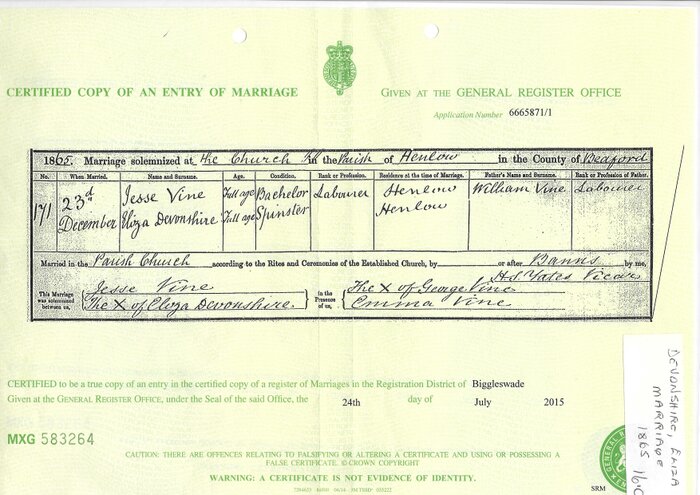 CERTIFIED COPY OF AN ENTRY OF MARRIAGE
GIVEN AT THE GENERAL REGISTER OFFICE
Application Number 6665871/1
1865. Marriage solemnized at the Church in the Parish of Henlow in the County of Bedford
No. When Married. Name and Surname. Age. Condition. Rank or Profession. Residence at the time of Marriage. Father's Name and Surname. Rank or Profession of Father.
171 23rd December Jesse Vine Full age Bachelor Labourer Henlow William Vine Labourer
Eliza Devonshire Full age Spinster Henlow
Married in the Parish Church according to the Rites and Ceremonies of the Established Church, by or after Banns by me,
H.S. Yates Vicar
This Marriage was solemnized between us, Jesse Vine
The X of Eliza Devonshire.
in the Presence of us, The X of George Vine
Emma Vine
CERTIFIED to be a true copy of an entry in the certified copy of a register of Marriages in the Registration District of Biggleswade
Given at the GENERAL REGISTER OFFICE, under the Seal of the said Office, the 24th day of July 2015
MXG 583264
CAUTION: THERE ARE OFFENCES RELATING TO FALSIFYING OR ALTERING A CERTIFICATE AND USING OR POSSESSING A
FALSE CERTIFICATE. © CROWN COPYRIGHT
WARNING: A CERTIFICATE IS NOT EVIDENCE OF IDENTITY.
SRM
DEVONSHIRE, ELIZA
MARRIAGE
1865